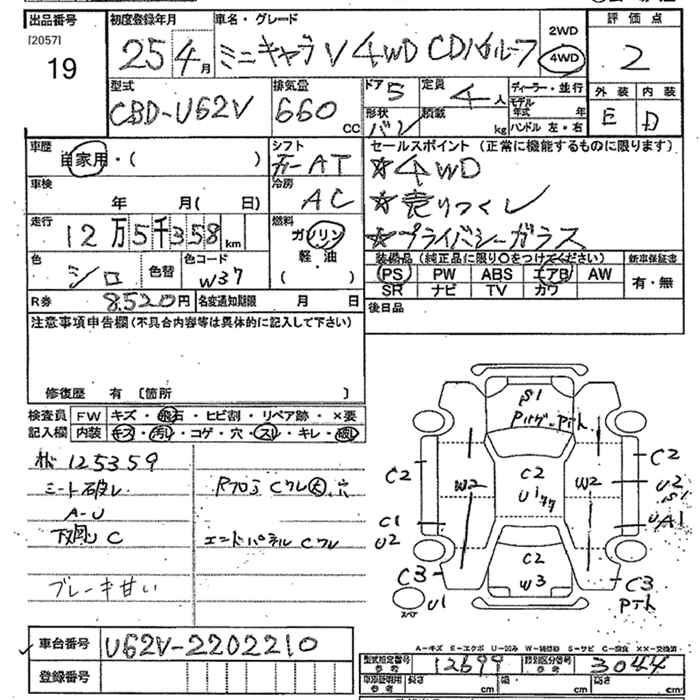 出品番号
[2057]
19
初度登録年月
25 4月
車名・グレード
ミニキャブV 4WD CDハイルーフ
2WD
4WD
評価点
2
型式
GBD-U62V
排気量
660cc
ドア 5
定員 4人
形状 バン
積載 kg
ディーラー・並行
モデル年式 年
ハンドル 左・右
外装 内装
E D
車歴
自家用・( )
シフト
F-AT
セールスポイント (正常に機能するものに限ります)
☆4WD
☆売りつくし
☆プライバシーガラス
車検
年 月( 日)
冷房
AC
走行
12万5千358km
燃料
ガソリン
軽・油
( )
色
シロ
色替
色コード
W37
装備品 (純正品に限り○をつけてください)
PS PW ABS エアB AW
SR ナビ TV カワ
新車保証書
有・無
R券 8,520円
名変通知期限 月 日
後日品
注意事項申告欄 (不具合内容等は具体的に記入して下さい)
修復歴 有 〔箇所 〕
検査員記入欄
FW キズ・飛石・ヒビ割・リペア跡・×要
内装 キズ・汚れ・コゲ・穴・スレ・キレ・破れ
125359
シート破レ
A-U
下廻り C
ブレーキ甘い
Rフロア Cクレ大 穴
エンドパネル Cクレ
S1
C2
U1
W2
W2
C2
W3
C2
C1
U2
C3
U1
C2
U2
S1
UA1
C3
スペア
A-キズ E-エクボ U-凹み W-補修跡 S-サビ C-腐食 ××-交換済
車台番号
U62V-2202210
登録番号
型式指定番号 参考 12699
類別区分番号 参考 3044
長さ cm
幅 cm
高さ cm